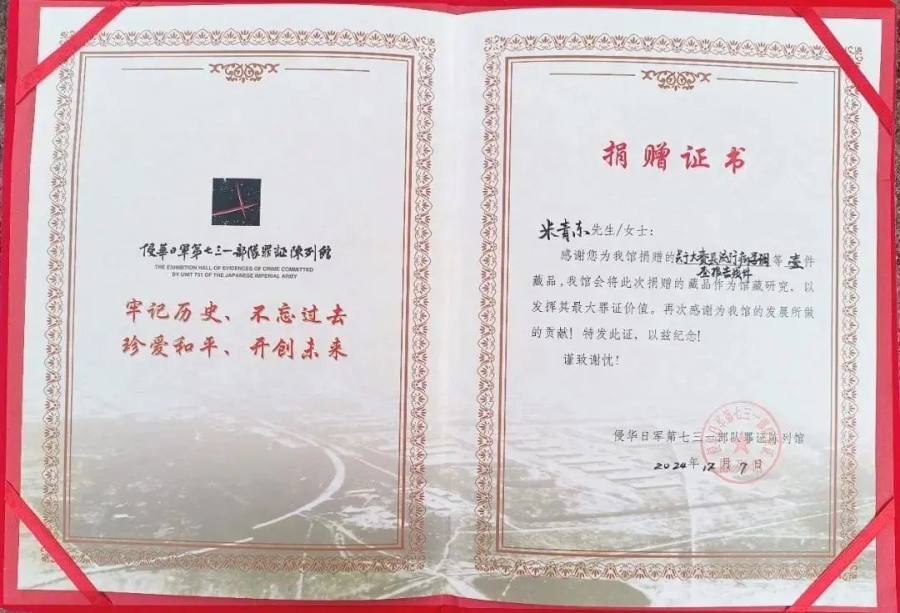 侵華日軍第七三一部隊罪証陳列館
THE EXHIBITION HALL OF EVIDENCES OF CRIME COMMITTED
BY UNIT 731 OF THE JAPANESE IMPERIAL ARMY
牢记历史、不忘过去
珍爱和平、开创未来
捐赠证书
米青东先生/女士:
感谢您为我馆捐赠的关于大豢县流行病 等壹件
报告附件
藏品,我馆会将此次捐赠的藏品作为馆藏研究,以
发挥其最大罪证价值。再次感谢为我馆的发展所做
的贡献!特发此证,以兹纪念!
谨致谢忱!
侵华日军第七三一部队罪证陈列馆
2024年12月7日